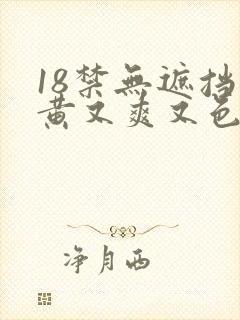 18禁無遮挡
黄又爽又色
净月西